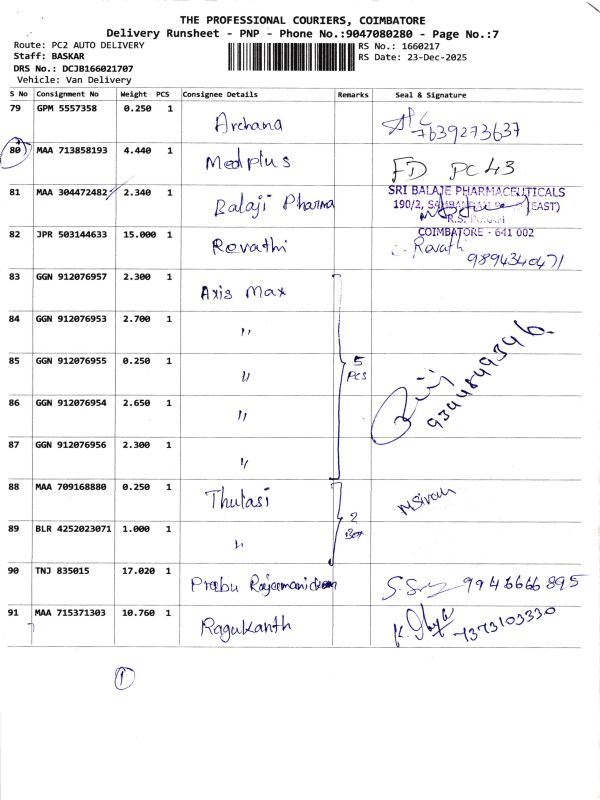 THE PROFESSIONAL COURIERS, COIMBATORE
Delivery Runsheet - PNP - Phone No.:9047080280 - Page No.:7
Route: PC2 AUTO DELIVERY RS No.: 1660217
Staff: BASKAR RS Date: 23-Dec-2025
DRS No.: DCJB166021707
Vehicle: Van Delivery
S No Consignment No Weight PCS Consignee Details Remarks Seal & Signature
79 GPM 5557358 0.250 1 Archana 7639273637
80 MAA 713858193 4.440 1 Medplus FD PC 43
81 MAA 304472482 2.340 1 Balaji Pharma SRI BALAJE PHARMACEUTICALS
190/2, (EAST)
R.S. PURAM
COIMBATORE - 641 002
82 JPR 503144633 15.000 1 Revathi Revathi
9894340471
83 GGN 912076957 2.300 1 Axis Max
84 GGN 912076953 2.700 1 "
85 GGN 912076955 0.250 1 " 5 PCS 9344849346
86 GGN 912076954 2.650 1 "
87 GGN 912076956 2.300 1 "
88 MAA 709168880 0.250 1 Thulasi M Sivam
89 BLR 4252023071 1.000 1 " 2 Box
90 TNJ 835015 17.020 1 Prabu Rajamanickam 9946666895
91 MAA 715371303 10.760 1 Ragukanth 7373103330
1